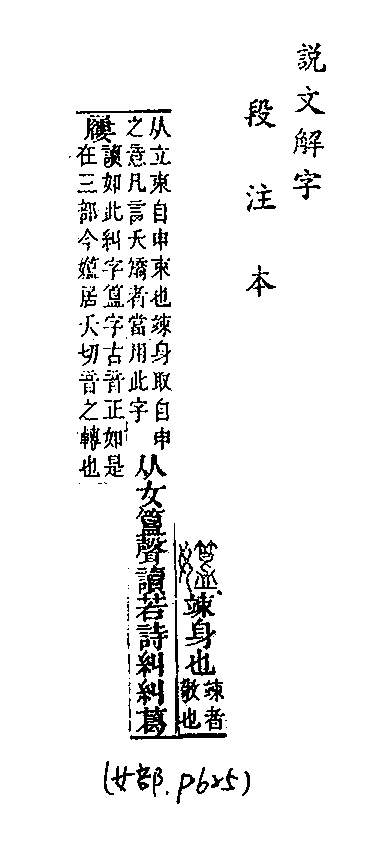 説文解字
段注本
竦身也
竦者
敬也
从立束自申束也竦身取自申
之意凡言夭矯者當用此字
从女簋聲讀若詩糾糾葛
屨
讀如此糾字簋字古音正如是
在三部今孂居夭切音之轉也
(女部.P625)